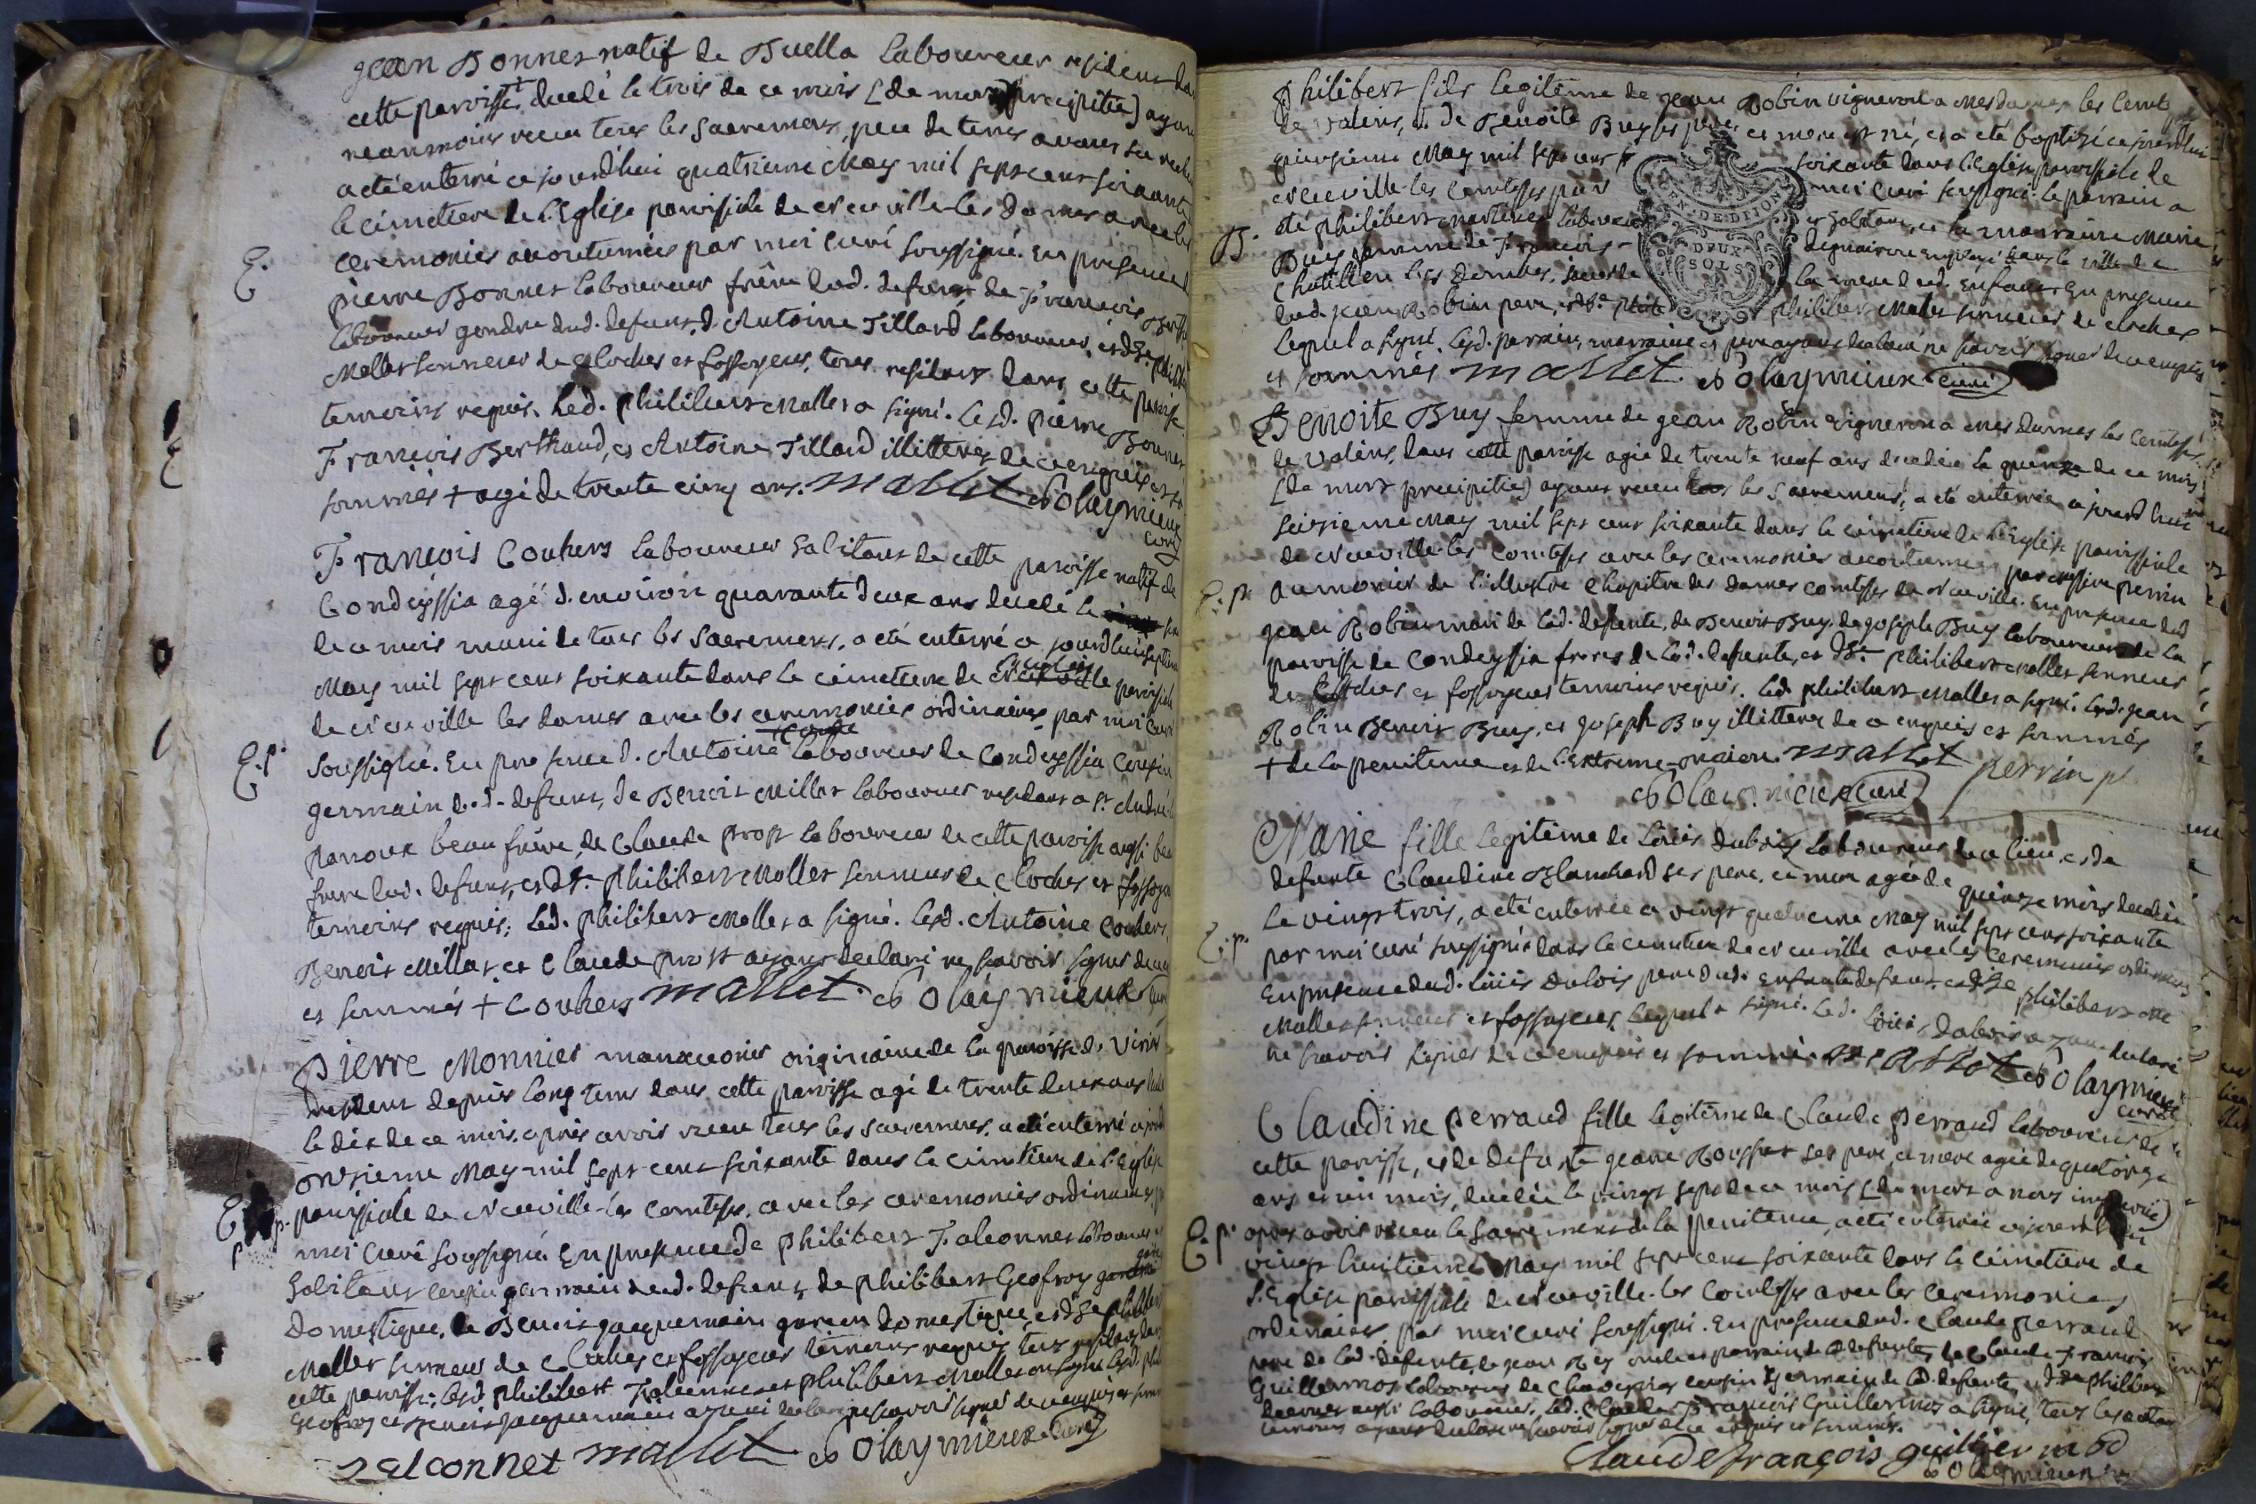 Jean Bonnet natif de Buella laboureur resident da
cette paroisse + decedé le trois de ce mois (de mort precipitée) ayant
neanmoins receu tous les sacremens, peu de tems avant sa
a eté enterré ce jourd'hui quatrieme May mil sept cent soixante
le cimetiere de l'Eglise paroissiale de Neuville-les-Dames avec les
E.
ceremonies acoutumées par moi curé soussigné. En presence d
pierre Bonnet laboureur frère dud. defunt de François Berth
laboureur gendre dud. defunt, d'Antoine Tillard laboureur, et dSr. philib
Mallet sonneur de cloches et fossoyeur, tous residans dans cette paroisse
temoins requis. Led. philibert Mallet a signé. Lesd. pierre Bonnet
François Berthaud, et Antoine Tillard illitterés de ce enquis et
sommés + agé de trente cinq ans. Mallet Polaymieux
curé
François Couhert laboureur habitant de cette paroisse natif de
Condeyssia agé d'environ quarante deux ans decedé le
de ce mois muni de tous les sacremens, a eté enterré ce jourd'hui septieme
May mil sept cent soixante dans le cimetiere de l'Eglise paroissiale
de Neuville les dames avec les ceremonies ordinaires par moi curé
E. p.
soussigné. En presence d'Antoine + laboureur de Condeyssia cousin
germain dud. defunt, de Benoit Millet laboureur residant a St. André
panoux beau frère, de Claude prost laboureur de cette paroisse aussi beau
frere dud. defunt, et dSr. philibert Mallet sonneur de cloches et fossoye
temoins requis; Led. philibert Mallet a signé. Lesd. Antoine Couhert,
Benoit Millet, et Claude prost ayant declaré ne savoir signer de ce
et sommés + Couhert Mallet Polaymieux curé
Pierre Monnier originaire de la paroisse de
resident depuis long tems dans cette paroisse agé de trente deux ans
le dix de ce mois, après avoir receu tous les sacremens, a eté enterré ce jourd
onzieme May mil sept cent soixante dans le cimetiere de l'Eglise
paroissiale de Neuville-les Comtesses, avec les ceremonies ordinaires, p
moi curé soussigné En presence de philibert Falconnet laboureur
habitant cousin germain dud. defunt, de philibert Geofroy
domestique, de Benoit Jacquemain garçon domestique, et dSe philibert
Mallet sonneur de cloches et fossoyeur temoins requis tous residans dans
cette paroisse; Lesd. philibert Falconnet et philibert Mallet ont signé Lesd. phili
Geofroy et Benoit Jacquemain ayant declaré ne savoir signer de ce enquis et somm
falconnet Mallet Polaymieux curé
Philibert fils legitime de Jean Robin vigneron a Mesdames les Comt
de valeins, et de Benoite Buy ses pere et mere est né, et a eté baptizé ce jourd'hui
quinzieme May mil sept cent soixante dans l'Eglise paroissiale de
Neuville-les Comtesses par moi curé soussigné. Le parrain a
B.
eté philibert laboureur et la marraine Marie
Buy femme de François
GEN. DE DIJON
DEUX
SOLS
Chatillon les Dombes, la mere dud. enfant. En presence
dud. Jean Robin pere, et dSr. philibert Mallet sonneur de cloches
lequel a signé. Lesd. parrain, marraine et pere ayant declaré ne savoir signer de ce enquis
et sommés Mallet Polaymieux curé
Benoite Buy femme de Jean Robin vigneron a mes dames les Comtesses
de valeins, dans cette paroisse agée de trente neuf ans decedée le quinze de ce mois
(de mort precipitée) ayant receu les sacremens + a eté enterrée ce jourd'hui
seizieme May mil sept cent soixante dans le cimetiere de l'Eglise paroissiale
de Neuville-les Comtesses avec les ceremonies acoutumées par messire perrin
E. p.
aumonier de l'illustre Chapitre des dames comtesses de Neuville. En presence dud
Jean Robin mari de lad. defunte, de Benoit Buy, de Joseph Buy laboureurs de la
paroisse de Condeyssia freres de lad. defunte, et dSr. philibert Mallet sonneur
de cloches et fossoyeur temoins requis. Led. philibert Mallet a signé. Lesd. Jean
Robin Benoit Buy, et Joseph Buy illitterés de ce enquis et sommés
+ de la penitence et de l'extreme-onction Mallet perrin p
Polaymieux curé
Marie fille legitime de Loüis dubois laboureur de ce lieu, et de
defunte Claudine Blanchard ses pere, et mere agée de quinze mois decedée
le vingt trois, a eté enterrée ce vingt quatrieme May mil sept cent soixante
E. p.
par moi curé soussigné dans le cimetiere de Neuville avec les ceremonies ordinaires
En presence dud. Loüis dubois pere dud. enfant defunt et dSe philibert
Mallet sonneur et fossoyeur, lequel a signé. Led. Loüis dubois ayant declaré
ne savoir signer de ce enquis et sommé Mallet Polaymieux
curé
Claudine perraud fille legitime de Claude perraud laboureur de
cette paroisse, et de defunte Jeane Rousset ses pere, et mere agée de quatorze
ans et un mois, decedée le vingt sept de ce mois (de mort a nous imprevue)
E. p.
après avoir receu le sacrement de la penitence, a eté enterrée ce jourd'hui
vingt huitieme May mil sept cent soixante dans le cimetiere de
l'Eglise paroissiale de Neuville-les Comtesses avec les ceremonies
ordinaires par moi curé soussigné. En presence dud. Claude perraud
pere de lad. defunte, de Jean Rey oncle et parrain de defunte, de Claude François
Guillermot laboureur de cousin germain de la defunte, et de philibert
aussi laboureur. Led. Claude François Guillermot a signé, tous les autres
temoins ayant declaré ne savoir signer de ce enquis et sommés.
Claude françois guillermod
Polaymieux